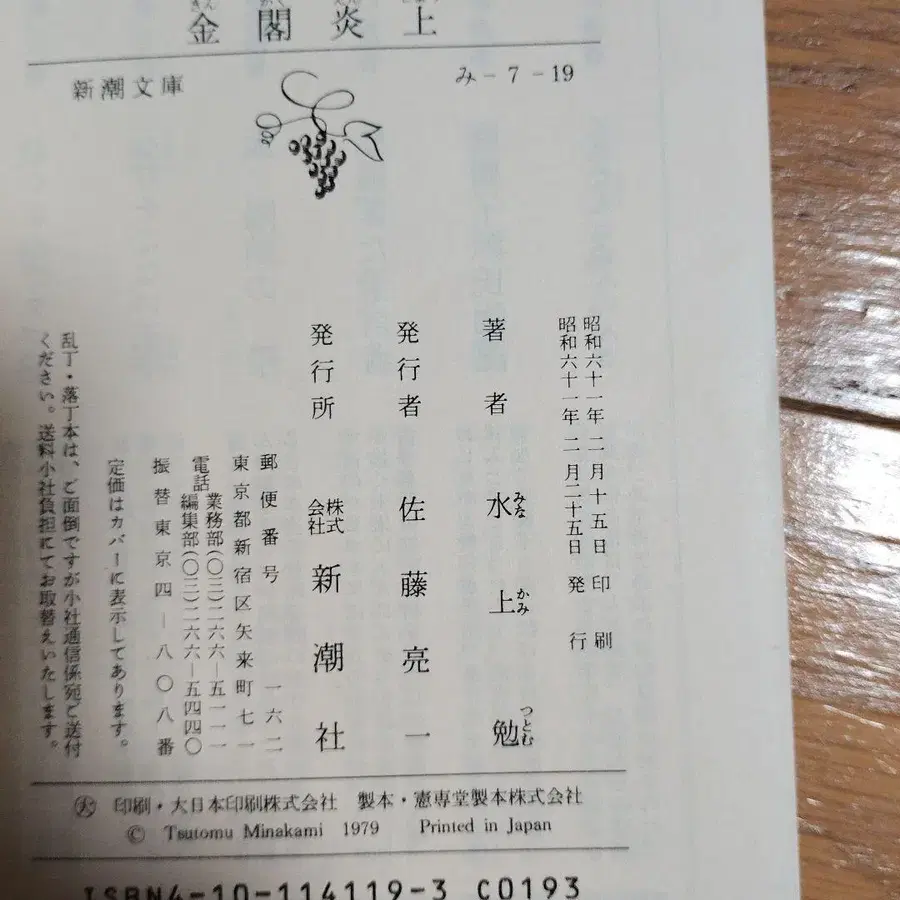 金閣炎上
新潮文庫
み-7-19
昭和六十一年二月十五日印刷
昭和六十一年二月二十五日発行
著者 水上勉
みな かみ つとむ
発行者 佐藤亮一
発行所 株式会社 新潮社
郵便番号 一六二
東京都新宿区矢来町七一
電話 業務部(〇三)二六六―五一一一
編集部(〇三)二六六―五四四〇
振替東京四―八〇八番
定価はカバーに表示してあります。
乱丁・落丁本は、ご面倒ですが小社通信係宛ご送付
ください。送料小社負担にてお取替えいたします。
大 印刷・大日本印刷株式会社 製本・憲専堂製本株式会社
© Tsutomu Minakami 1979 Printed in Japan
ISBN4-10-114119-3 C0193